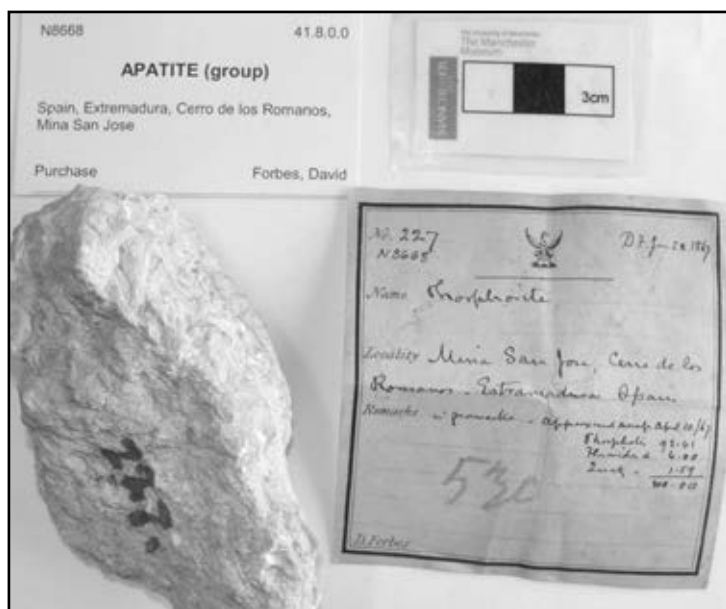 N8668 41.8.0.0
APATITE (group)
Spain, Extremadura, Cerro de los Romanos,
Mina San Jose
Purchase Forbes, David
The Manchester
Museum
MANCHESTER
3cm
No. 227
N8668
D.F. Jan 1867
Name Phosphorite
Locality Mina San Jose, Cerro de los
Romanos - Estramadura Spain
Remarks in - Approximate April 20/67
Phosphate 92.41
6.00
1.59
100.00
530
D. Forbes
227.